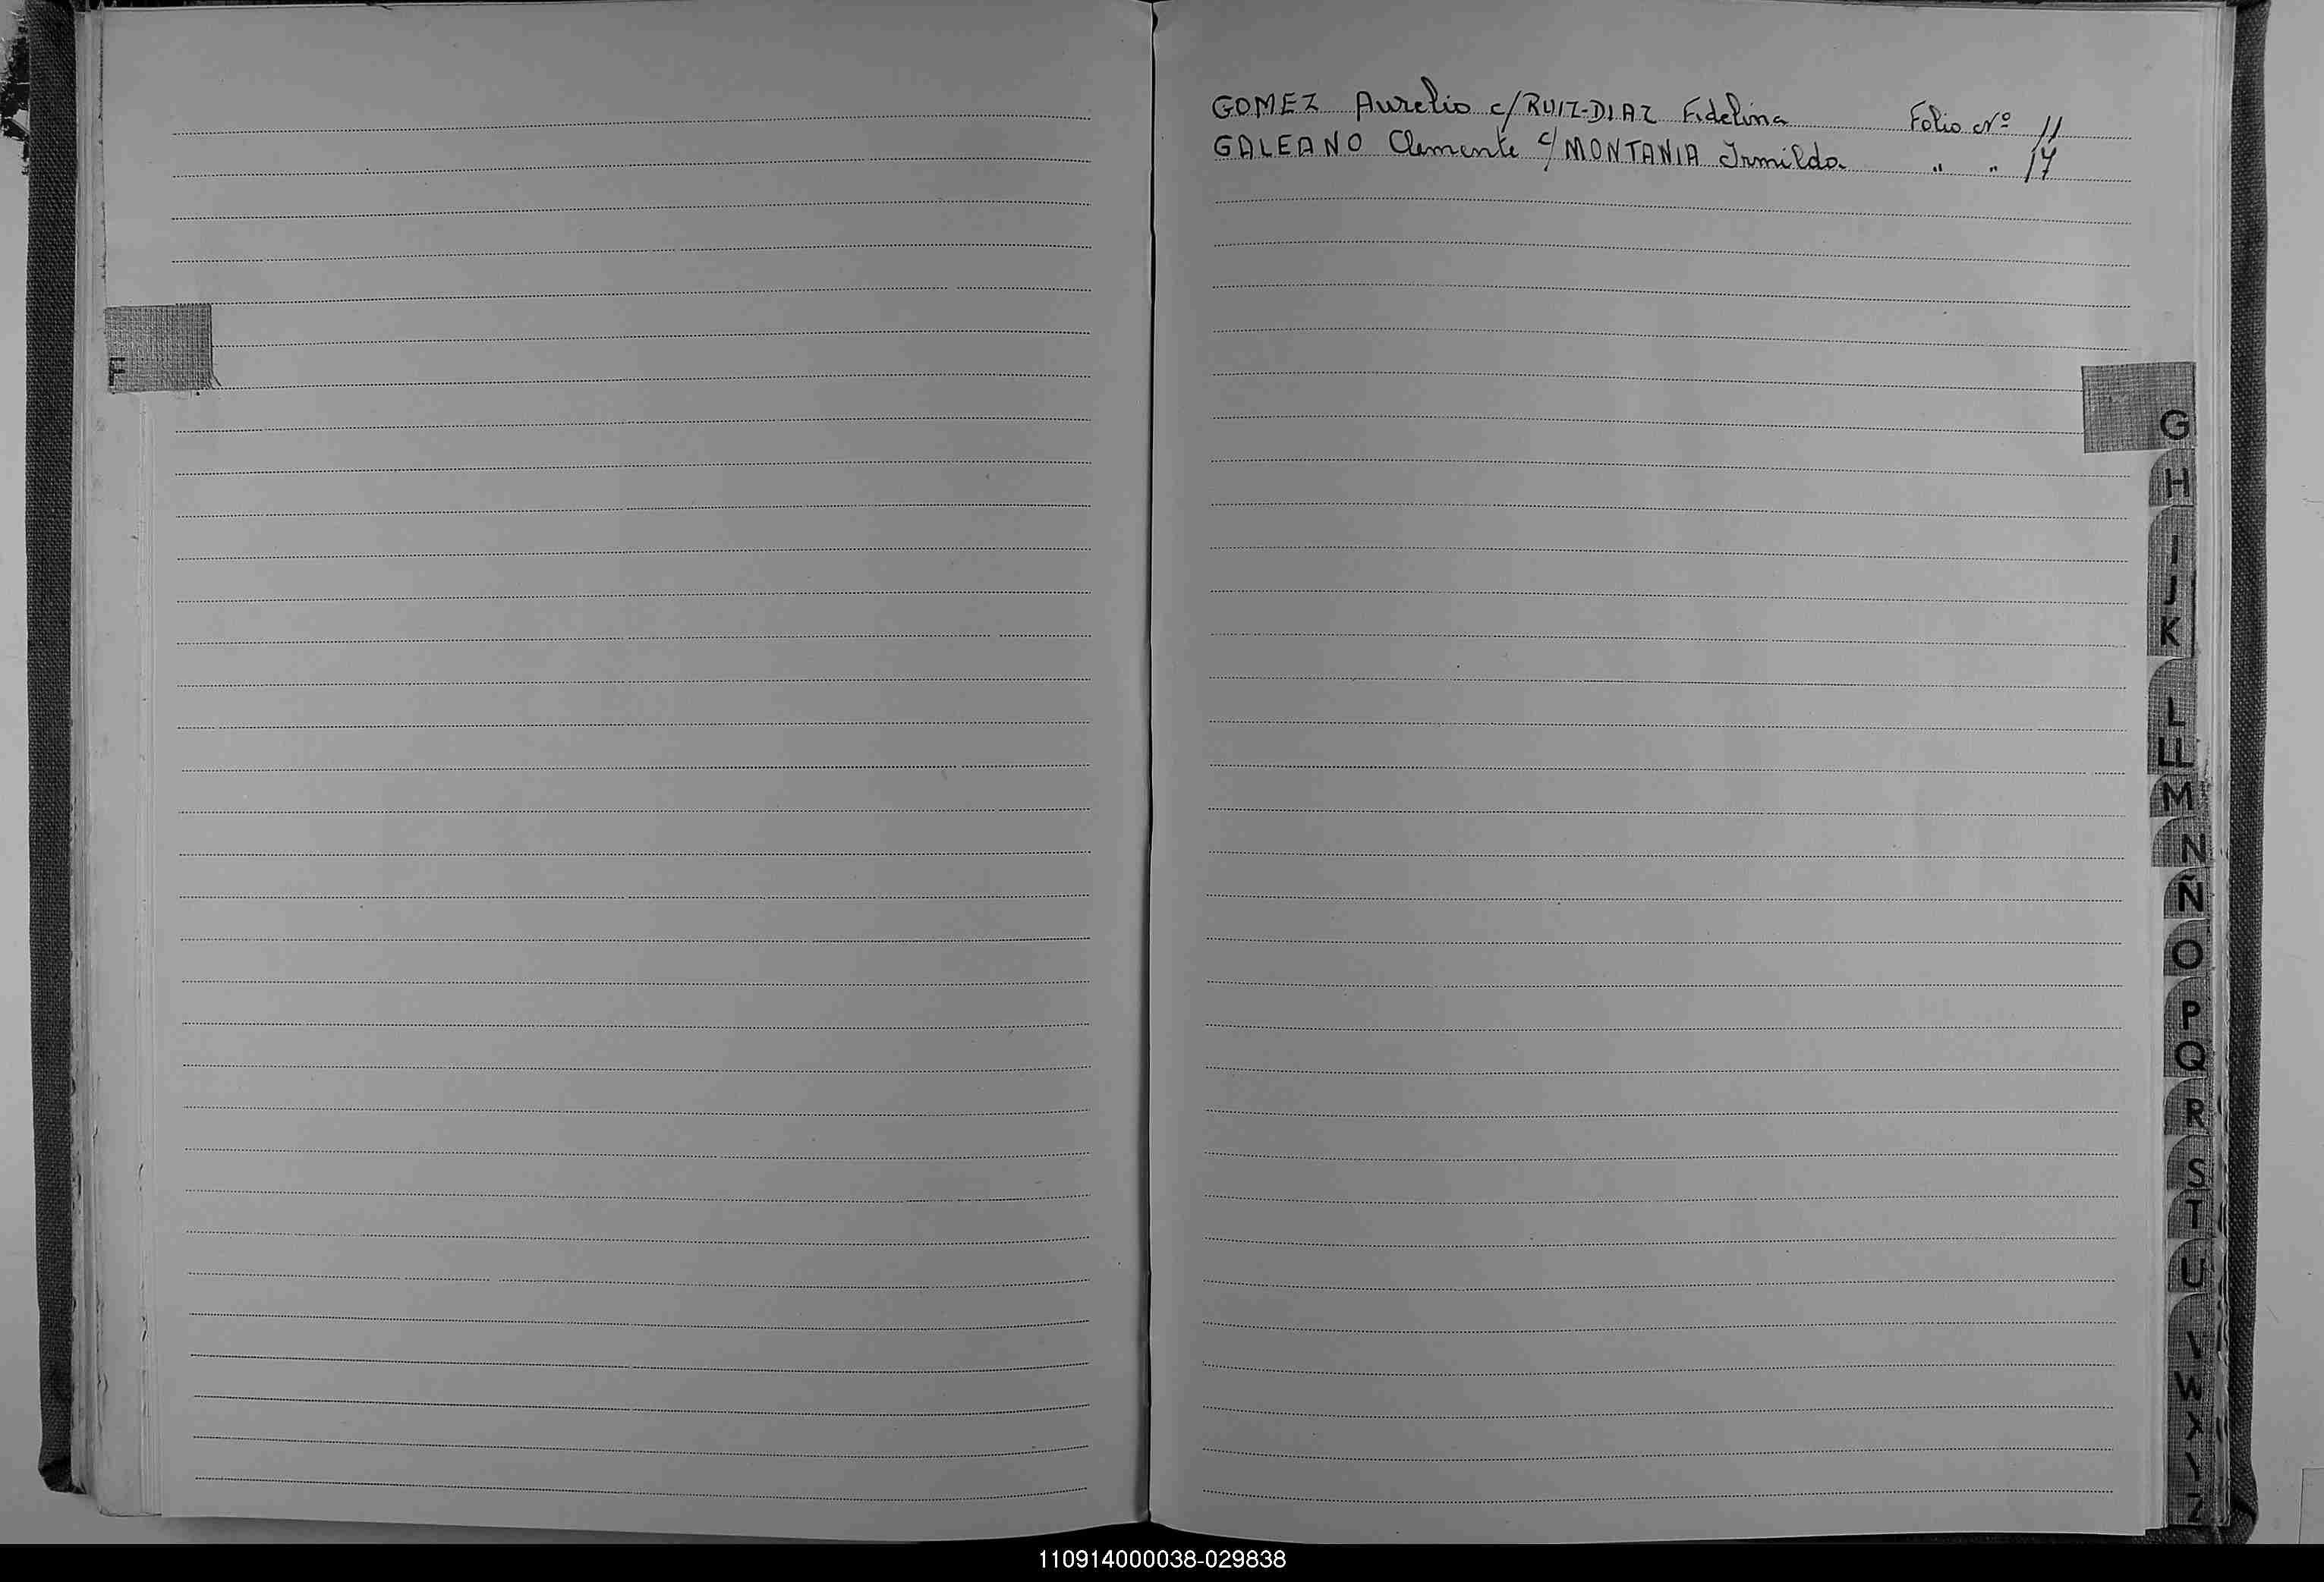 GOMEZ Aurelio c/ RUIZ-DIAZ Fidelina Folio Nº 11
GALEANO Clemente c/ MONTANIA Irmilda " " 17
F
G
H
I
J
K
L
LL
M
N
Ñ
O
P
Q
R
S
T
U
V
W
X
Y
Z
110914000038-029838